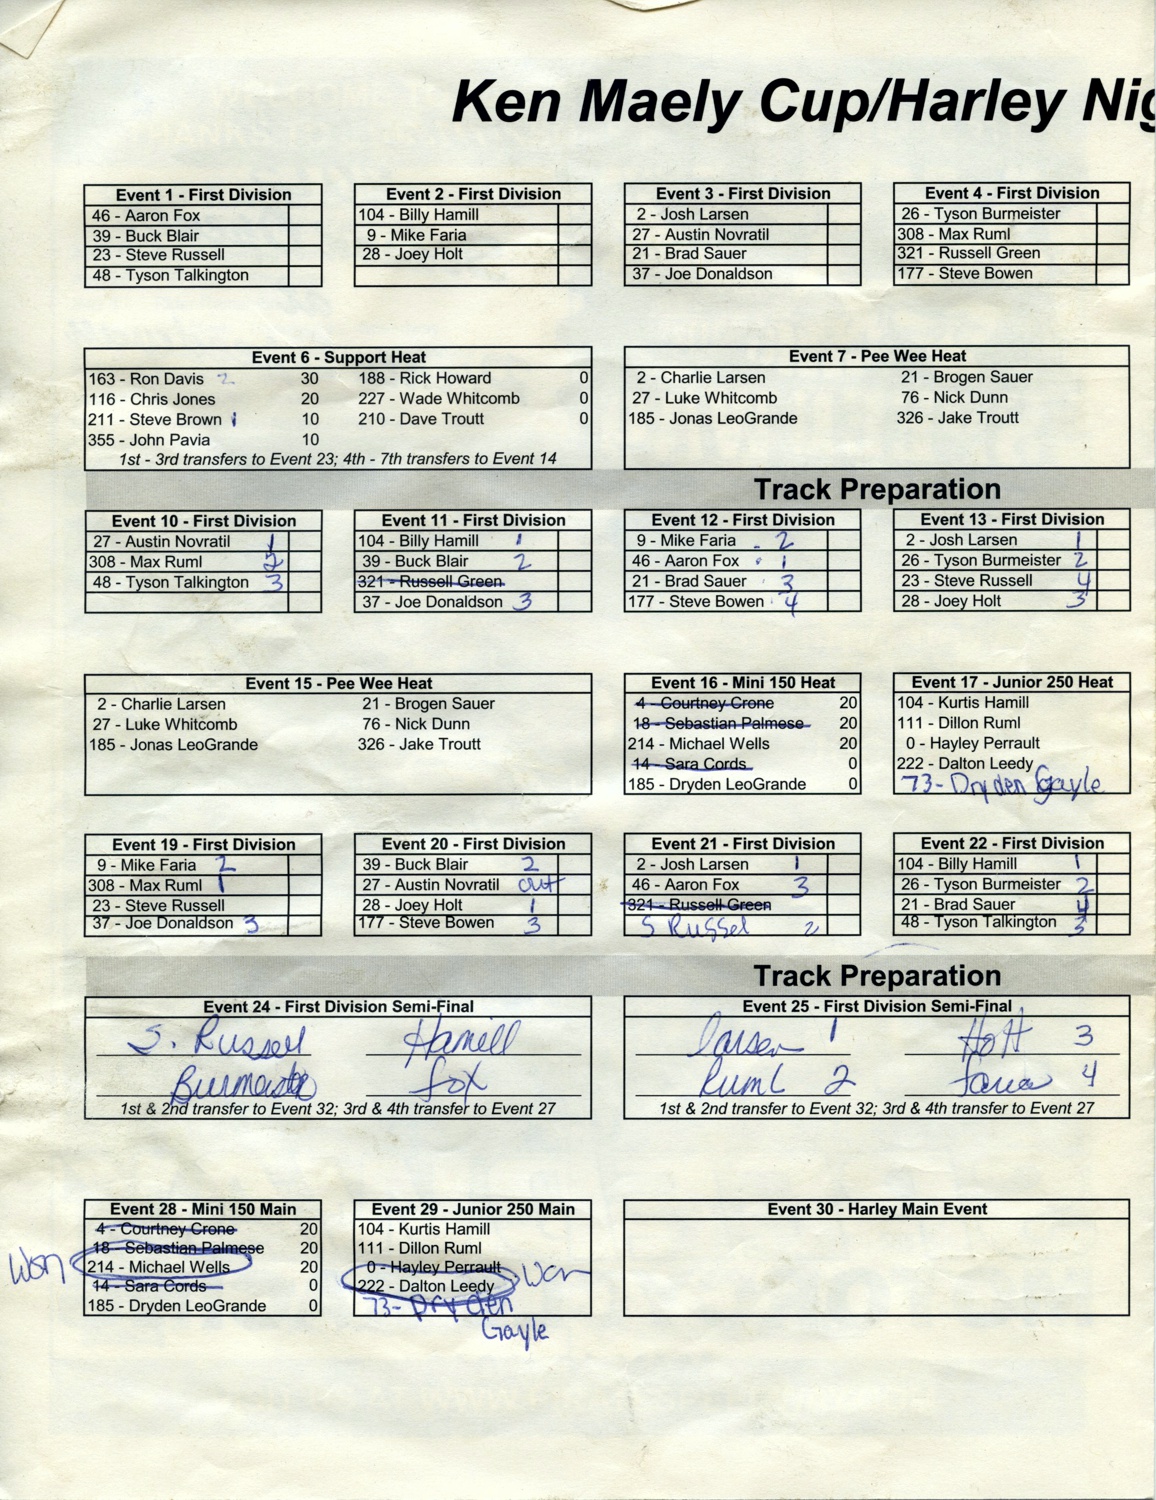 Ken Maely Cup/Harley Nig
Event 1 - First Division
46 - Aaron Fox
39 - Buck Blair
23 - Steve Russell
48 - Tyson Talkington
Event 2 - First Division
104 - Billy Hamill
9 - Mike Faria
28 - Joey Holt
Event 3 - First Division
2 - Josh Larsen
27 - Austin Novratil
21 - Brad Sauer
37 - Joe Donaldson
Event 4 - First Division
26 - Tyson Burmeister
308 - Max Ruml
321 - Russell Green
177 - Steve Bowen
Event 6 - Support Heat
163 - Ron Davis 2 30 188 - Rick Howard 0
116 - Chris Jones 20 227 - Wade Whitcomb 0
211 - Steve Brown 1 10 210 - Dave Troutt 0
355 - John Pavia 10
1st - 3rd transfers to Event 23; 4th - 7th transfers to Event 14
Event 7 - Pee Wee Heat
2 - Charlie Larsen 21 - Brogen Sauer
27 - Luke Whitcomb 76 - Nick Dunn
185 - Jonas LeoGrande 326 - Jake Troutt
Track Preparation
Event 10 - First Division
27 - Austin Novratil 1
308 - Max Ruml 2
48 - Tyson Talkington 3
Event 11 - First Division
104 - Billy Hamill 1
39 - Buck Blair 2
321 - Russell Green
37 - Joe Donaldson 3
Event 12 - First Division
9 - Mike Faria 2
46 - Aaron Fox 1
21 - Brad Sauer 3
177 - Steve Bowen 4
Event 13 - First Division
2 - Josh Larsen 1
26 - Tyson Burmeister 2
23 - Steve Russell 4
28 - Joey Holt 3
Event 15 - Pee Wee Heat
2 - Charlie Larsen 21 - Brogen Sauer
27 - Luke Whitcomb 76 - Nick Dunn
185 - Jonas LeoGrande 326 - Jake Troutt
Event 16 - Mini 150 Heat
4 - Courtney Crone 20
18 - Sebastian Palmese 20
214 - Michael Wells 20
14 - Sara Cords 0
185 - Dryden LeoGrande 0
Event 17 - Junior 250 Heat
104 - Kurtis Hamill
111 - Dillon Ruml
0 - Hayley Perrault
222 - Dalton Leedy
73- Dryden Gayle
Event 19 - First Division
9 - Mike Faria 2
308 - Max Ruml 1
23 - Steve Russell
37 - Joe Donaldson 3
Event 20 - First Division
39 - Buck Blair 2
27 - Austin Novratil out
28 - Joey Holt 1
177 - Steve Bowen 3
Event 21 - First Division
2 - Josh Larsen 1
46 - Aaron Fox 3
321 - Russell Green
S Russel 2
Event 22 - First Division
104 - Billy Hamill 1
26 - Tyson Burmeister 2
21 - Brad Sauer 4
48 - Tyson Talkington 3
Track Preparation
Event 24 - First Division Semi-Final
S. Russell Hamill
Burmeister Fox
1st & 2nd transfer to Event 32; 3rd & 4th transfer to Event 27
Event 25 - First Division Semi-Final
Larsen 1 Holt 3
Ruml 2 Faria 4
1st & 2nd transfer to Event 32; 3rd & 4th transfer to Event 27
Event 28 - Mini 150 Main
4 - Courtney Crone 20
18 - Sebastian Palmese 20
Won 214 - Michael Wells 20
14 - Sara Cords 0
185 - Dryden LeoGrande 0
Event 29 - Junior 250 Main
104 - Kurtis Hamill
111 - Dillon Ruml
0 - Hayley Perrault
222 - Dalton Leedy Won
73- Dryden
Gayle
Event 30 - Harley Main Event